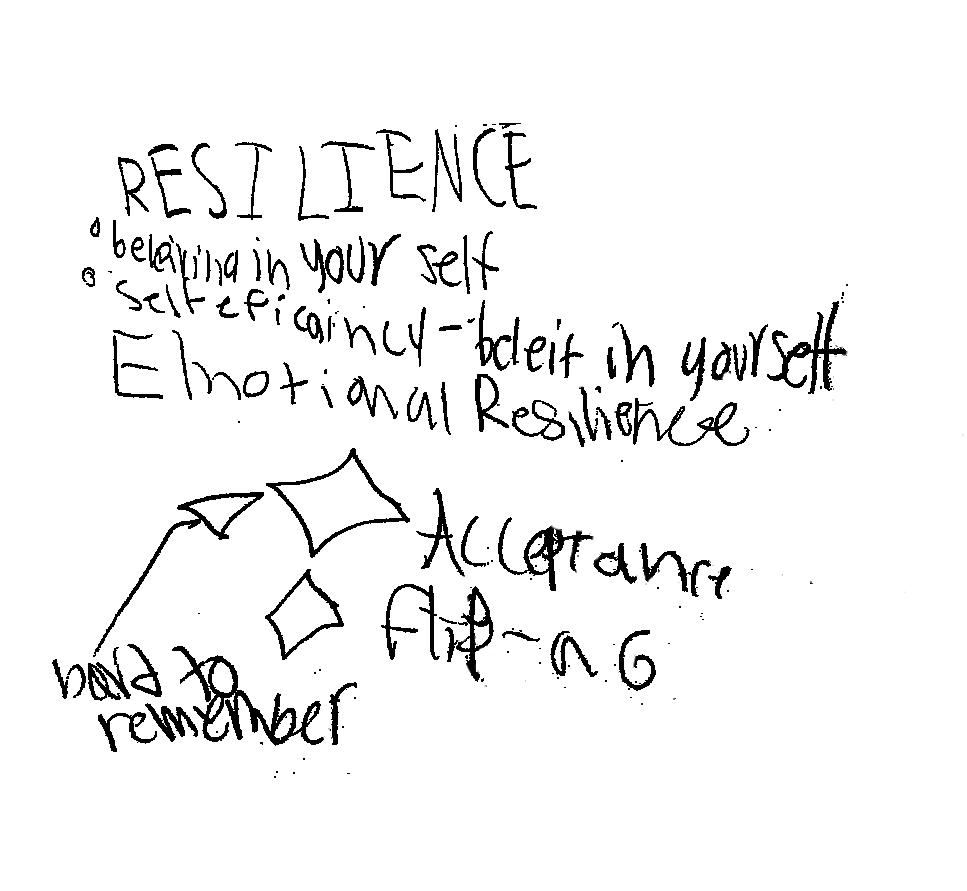 RESILIENCE
• in your self
• self eficaincy - beleif in yourself
Emotional Resilience
Acceptance
flip - a 6
to
remember